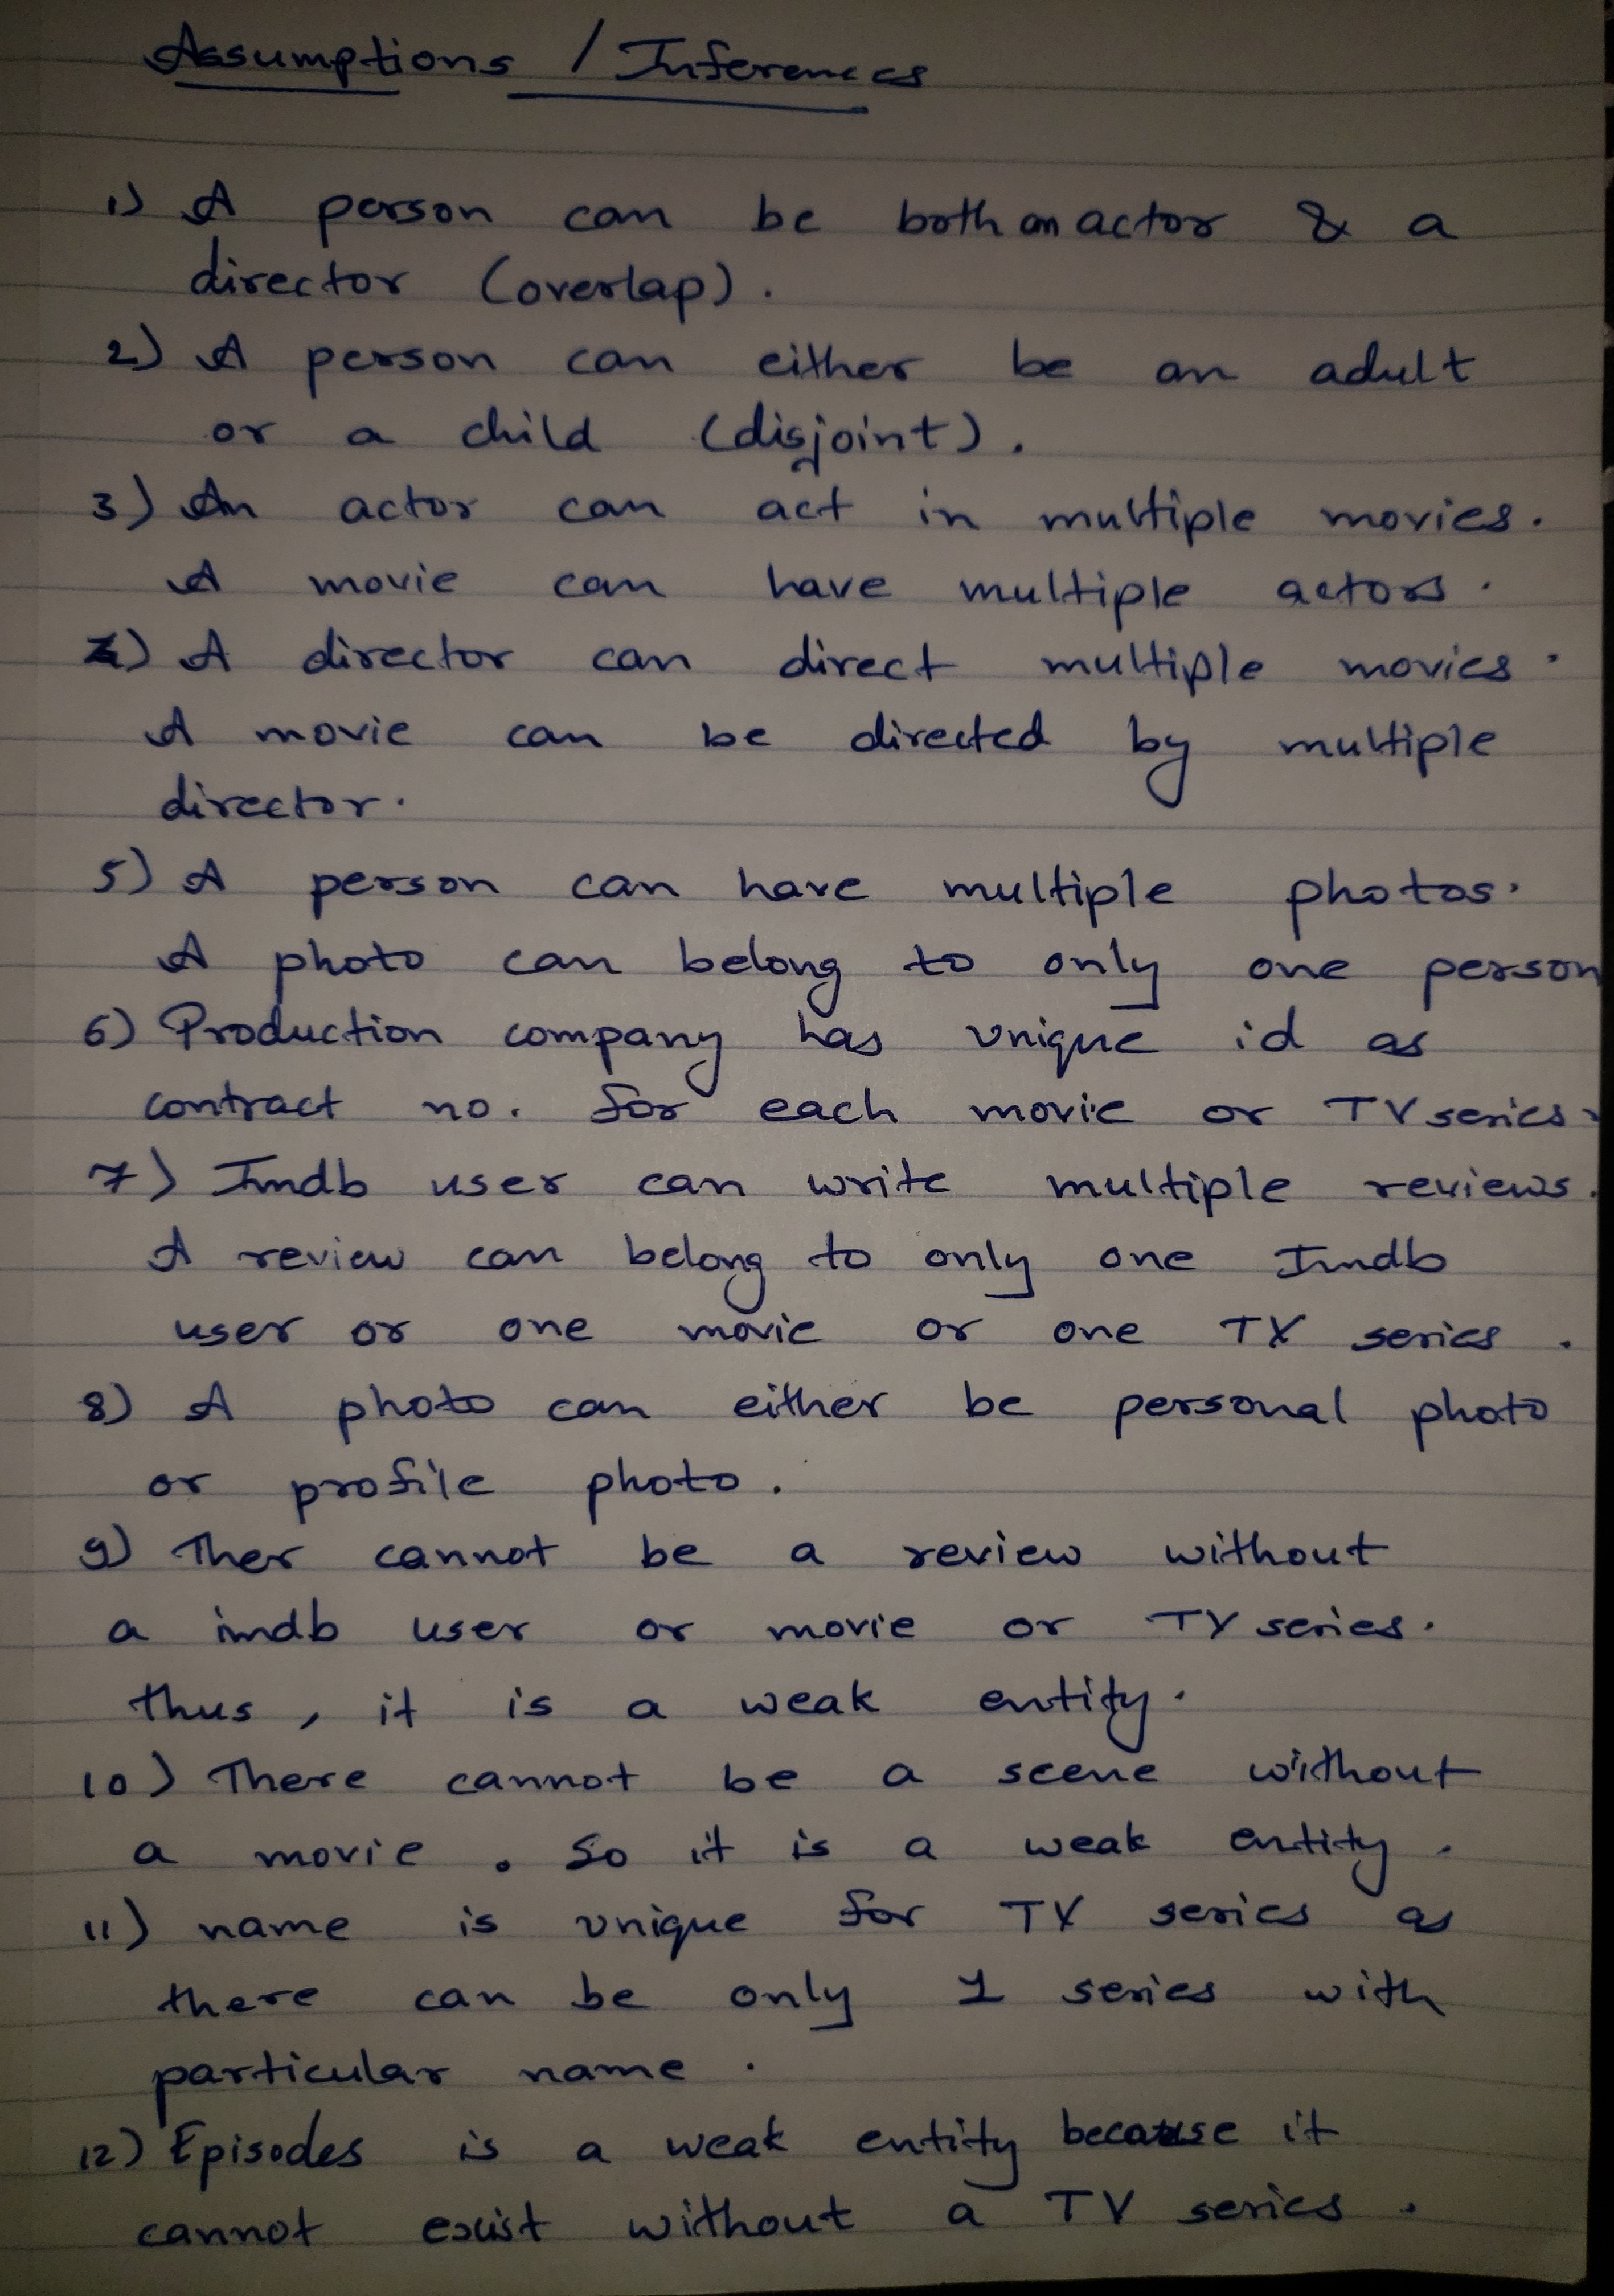 Assumptions / Inferences
1) A person can be both an actor & a
director (overlap).
2) A person can either be an adult
or a child (disjoint).
3) An actor can act in multiple movies.
A movie can have multiple actors.
4) A director can direct multiple movies.
A movie can be directed by multiple
director.
5) A person can have multiple photos.
A photo can belong to only one person
6) Production company has unique id as
contract no. for each movie or TV series.
7) Imdb user can write multiple reviews.
A review can belong to only one Imdb
user or one movie or one TV series.
8) A photo can either be personal photo
or profile photo.
9) Ther cannot be a review without
a imdb user or movie or TV series.
thus, it is a weak entity.
10) There cannot be a scene without
a movie. So it is a weak entity.
11) name is unique for TV series as
there can be only 1 series with
particular name.
12) Episodes is a weak entity because it
cannot exist without a TV series.